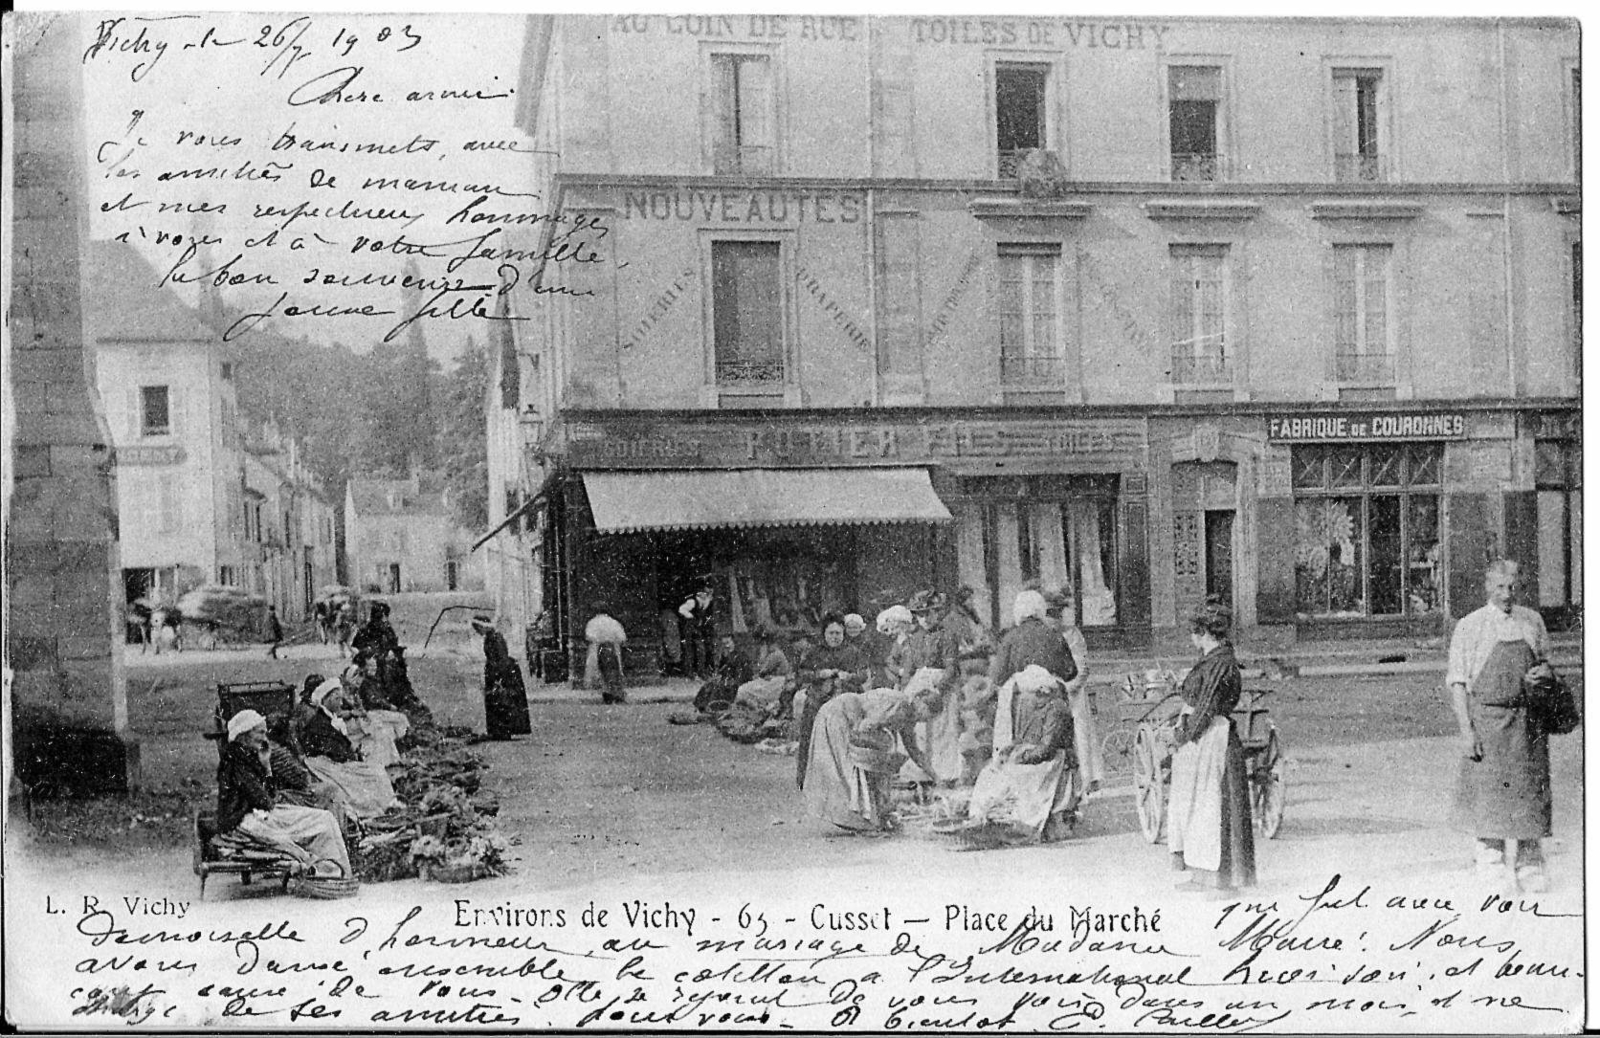 Vichy le 26/7 1903
Chere amie
Je vous transmets, avec
les amitiés de maman
et mes respectueux hommages
à vous et à votre famille,
le bon souvenir d'une
jeune fille
AU COIN DE RUE TOILES DE VICHY
NOUVEAUTES
SOIERIES DRAPERIE
SOIERIES TOILES
FABRIQUE DE COURONNES
L. R. Vichy
Environs de Vichy - 63 - Cusset — Place du Marché
qui fut avec vous
Demoiselle d'honneur au mariage de Madame
Nous
avons dansé ensemble le cotillon a l'International hier soir, et beau-
coup causé de vous. Elle se rejouit de vous voir dans un mois, et me
charge de ses amitiés pour vous. A bientot